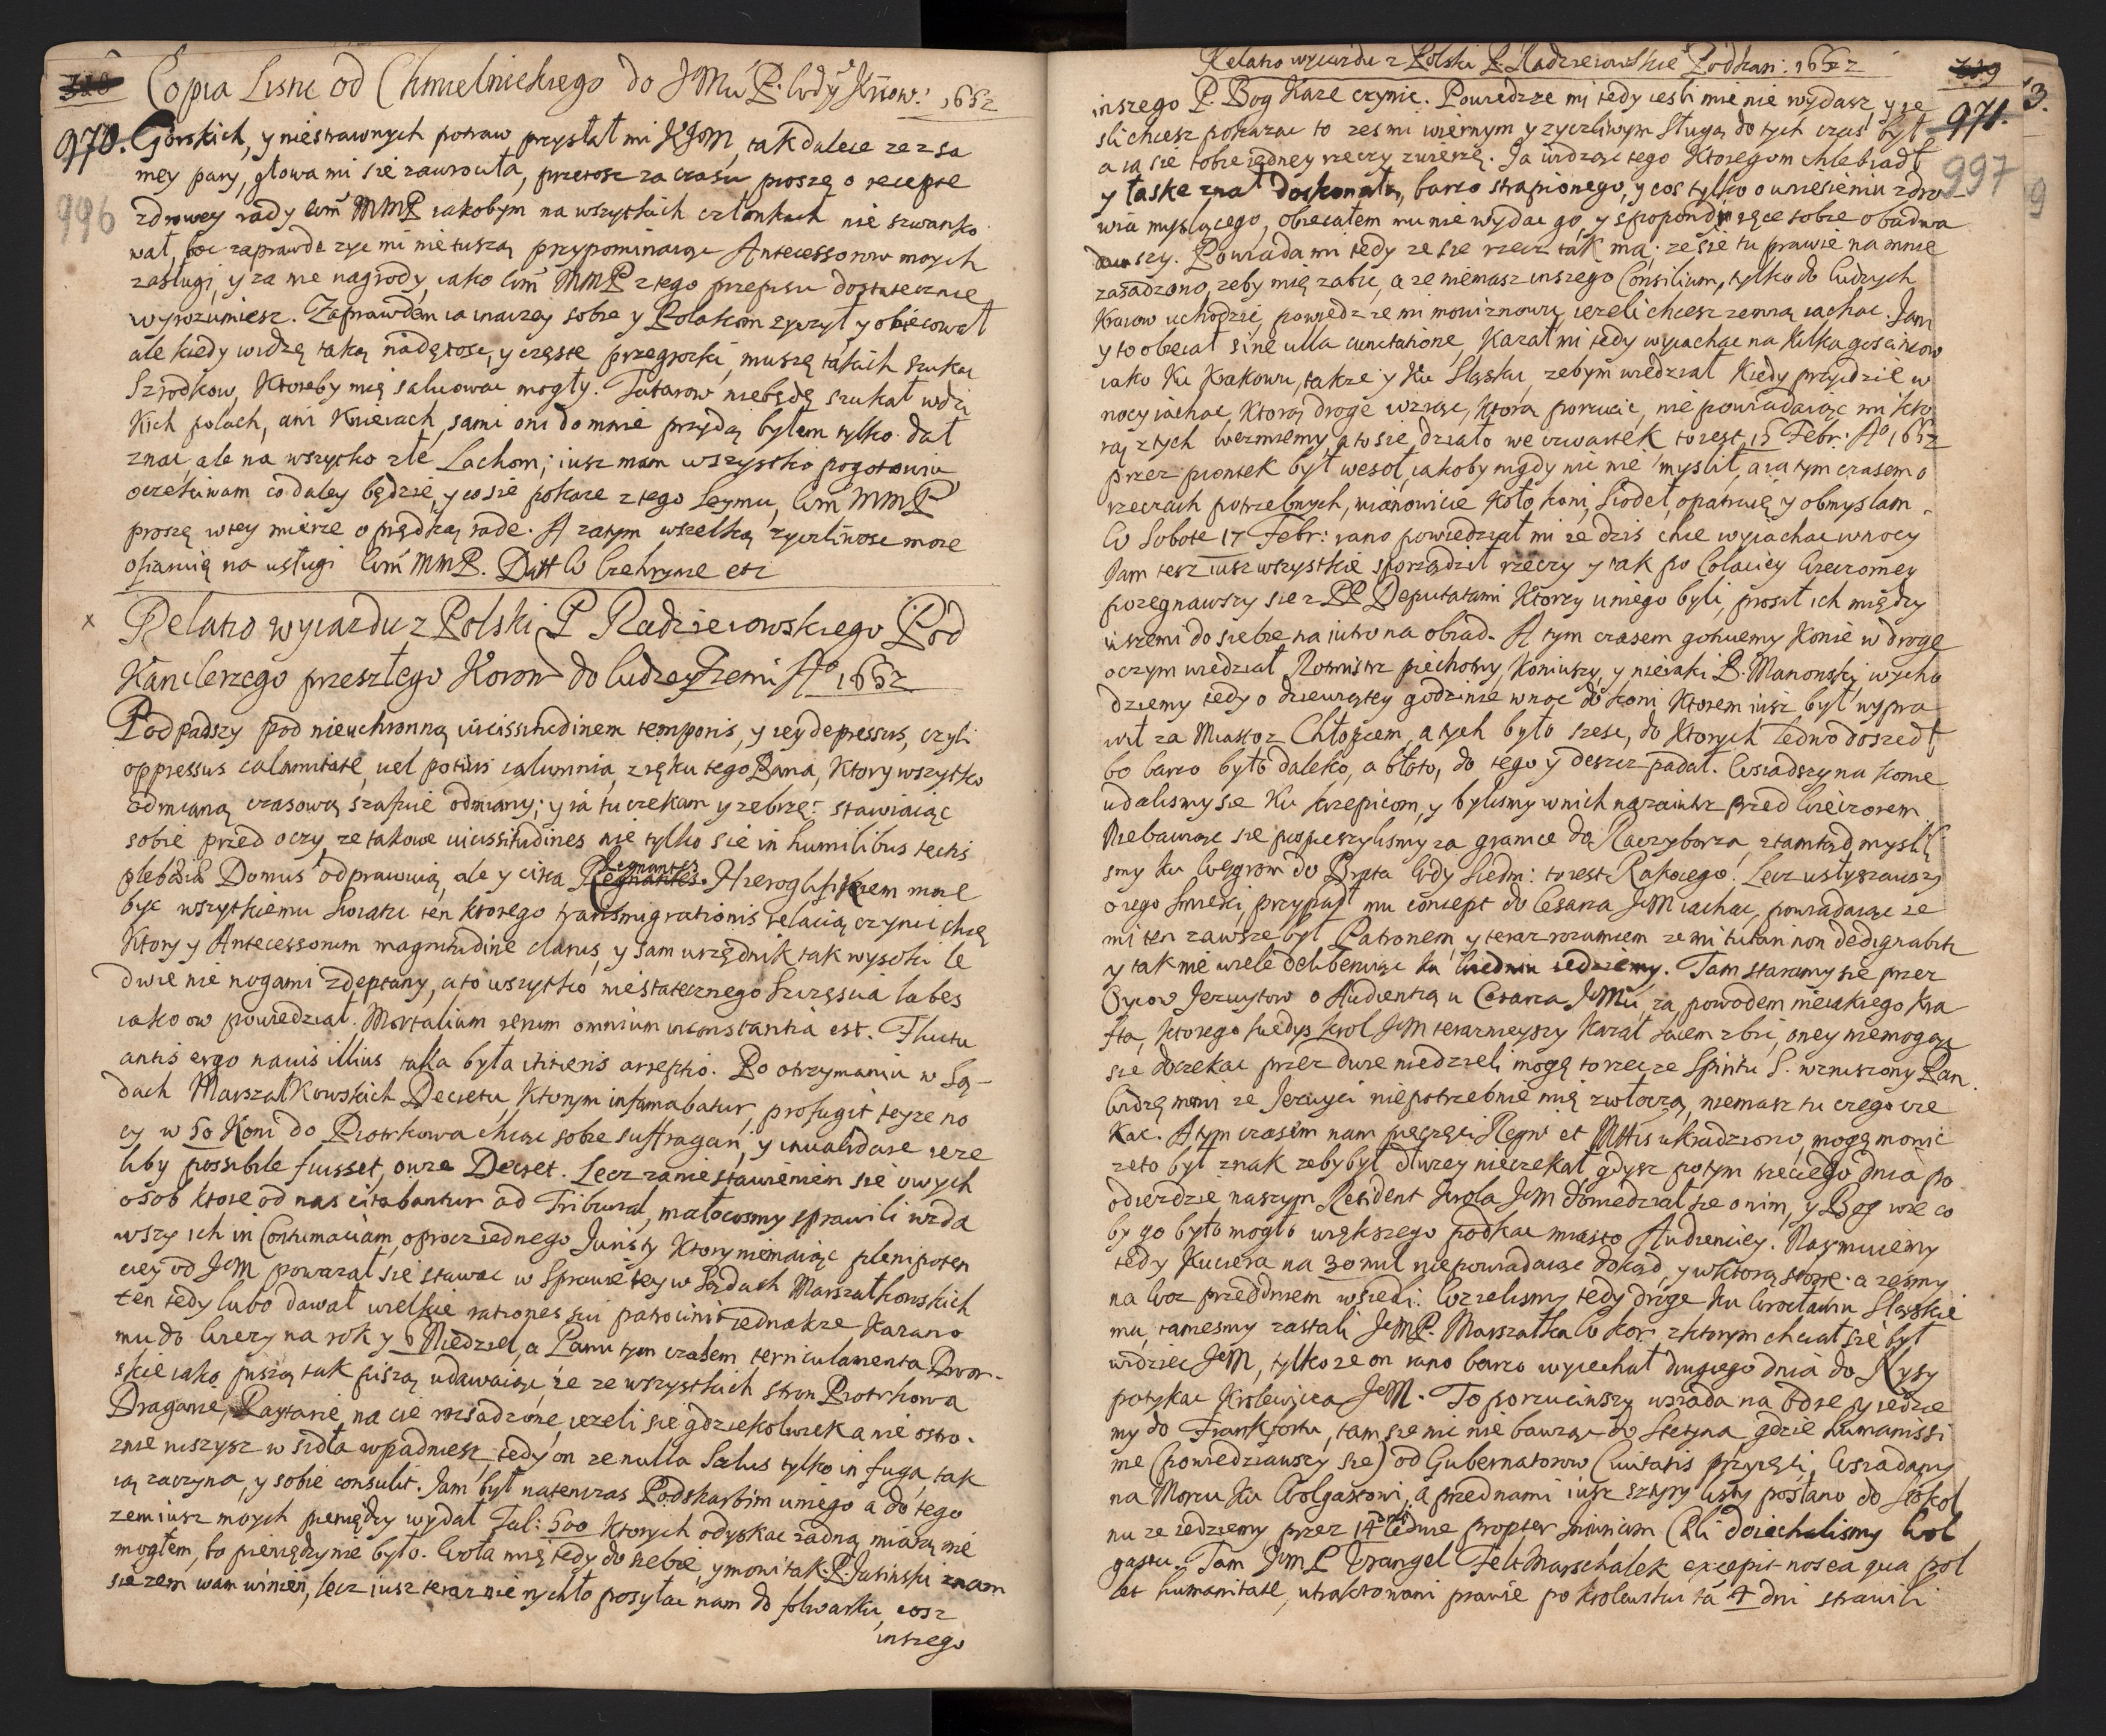 Copia Listu od Chmielnickiego do JMci P. Wdy Kiiow: 1652
970.
996
Gorskich, y niestrawnych potraw przysłał mi JKJM, tak dalece ze z sa
mey pary, głowa mi sie zawrociła, przetosz za czasu proszę o recepte
zdrowey rady MMP iakobym na wszytkich członkach nie szwanko
wał, boc zaprawde zyc mi nie tuszą przypominaiąc Antecessorow moych
zasługi, y za nie nagrody, iako MMP z tego przepisu dostatecznie
wyrozumiesz. Zaprawdem ia inaczey sobie y Polakom zyczył y obiecował
ale kiedy widzę taką nadętosc, y częste przegrozki, muszę takich szukac
Szrodkow, Ktoreby mię salwowac mogły. Tatarow niebędę szukał w dzi
kich polach, ani Kniejach, sami oni do mnie przydą bylem tylko dał
znac, ale na wszytko złe Lachom; iusz mam wszystko pogotowiu
oczekiwam co daley będzie, y co sie pokaze z tego Seymu, MMP
proszę w tey mierze o prędką rade. A zatym wszelką zyczliwosc moie
ofiaruię na usługi MMP. Datt W Czehrynie etc
x Relatio wyiazdu z Polski P Radzieiowskiego Pod
Kanclerzego przeszłego Koron do Cudzey Ziemi Ao 1652
Podpadszy pod nieuchronną vicissitudinem temporis, y iey depressus, czyli
oppressus calamitate, uel potius calumnia, z ręku tego Pana, Ktory wszytko
odmianą czasową szafuie odmiany; y ia tu czekam y zebrzę: stawiaiąc
sobie przed oczy ze takowe uicissitudines nie tylko sie in humilibus tectis
plebeia Domus odprawuią, ale y circa Regnantes. Hieroglifikiem moze
byc wszytkiemu Swiatu ten ktorego transmigrationis relacią czynic chcę
Ktory y Antecessorum magnitudine clarus, y sam urzędnik tak wysoki le
dwie nie nogami zdeptany, a to wszytko niestatecznego Szczęscia labes
iako ow powiedział. Mortalium rerum omnium inconstantia est. Fluctu
antis ergo nauis illius taka była itineris arreptio. Po otrzymaniu w Są-
dach Marszałkowskich Decretu, Ktorym infamabatur, profugit teyze no
cy w 50 Koni do Piotrkowa chcąc sobie suffragari y inualidare ieze
liby possibile fuisset, owze Decret. Lecz zaniestawieniem sie owych
osob ktore od nas citabantur ad Tribunal, małocosmy sprawili wzda
wszy ich in Contumaciam, oprocz iednego Juristy Ktory niemaiąc plenipoten
ciey od JeM powazał sie stawac w Sprawie tey w Sądach Marszałkowskich
ten tedy lubo dawał wielkie rationes sui patrocinii iednakze Karano
mu do Wiezy na rok y 6 Niedziel, a Panu tym czasem terriculamenta Dwor-
skie iako piszą tak piszą udawaiąc, ze ze wszystkich stron Piotrkowa
Dragonie, Raytarie, na cie rozsadzone, iezeli sie gdziekolwiek a nie ostro-
znie ruszysz w sidła wpadniesz, tedy on ze nulla Salus tylko in fuga, tak
ią zaczyna, y sobie consulit. Jam był natenczas Podskarbim uniego a do tego
zem iusz moych pieniędzy wydał Tal: 500 Ktorych odyskac zadną miarą nie
mogłem, bo pieniędzy nie było. Woła mię tedy do siebie, y mowi tak. P. Jasinski znam
sie zem wam winien, lecz iusz teraz nie rychło posyłac nam do folwarku, cosz
inszego
Relatio wyiazdu z Polski P. Radzieiowskie Podkan: 1652
971.
997
inszego P. Bog Kaze czynic. Powiedzze mi tedy iesli mie nie wydasz, y ie
sli chcesz pokazac to zes mi wiernym y zyczliwym sługą do tych czas był
a ia sie tobie iedney rzeczy zwierzę. Ja widząc tego Ktoregom chleb iadł
y łaske znał doskonałą, barzo strapionego, y cos tylko o uniesieniu zdro-
wia myslącego, obiecałem mu nie wydac go, y spoponduiąc tobie obadwa
duszy. Powiada mi tedy ze sie rzecz tak ma; ze sie tu prawie na mnie
zasadzono, zeby mię zabic, a ze niemasz inszego Consilium, tylko do Cudzych
Kraiow uchodzic, powiedz ze mi mowi znowu, iezeli chcesz zemną iachac. Jam
y to obiecał sine ulla cunctatione, Kazał mi tedy wyiachac na Kilka goscincow
iako Ku Krakowu, takze y Ku Sląsku, zebym wiedział Kiedy przydzie w
nocy iachac, Ktorą droge wziąc, Ktorą porzucic, nie powiadaiąc mi kto
rą z tych wezmiemy, a to sie działo we czwartek to iest 15 Febr: Ao 1652
przez piontek był wesoł, iakoby nigdy nic nie myslił, a ia tym czasem o
rzeczach potrzebnych, mianowicie Koło koni, Siodeł, opatruię y obmyslam.
W Sobote 17 Febr: rano powiedział mi ze dzis chce wyiachac w nocy
Jam tesz iusz wszystkie sporządził rzeczy y tak po Colaciey Wieczorney
pozegnawszy sie z PP Deputatami Ktorzy u niego byli, prosił ich między
inszemi do siebie na iutro na obiad. A tym czasem gotuiemy Konie w droge
o czym wiedział Rotmistrz piechotny, Koniuszy, y nieiaki P. Manowski, wycho
dziemy tedy o dziewiątey godzinie w noc do koni Ktorem iusz był wypra
wił za Miasto z Chłopcem, a tych było szesc, do Ktorych ledwo doszedł
bo barzo było daleko, a błoto, do tego y deszcz padał. Wsiadszy na konie
udalismy sie Ku Krzepicom, y bylismy w nich nazaiutrz przed Wieczorem
Niebawiąc sie pospieszylismy za granice do Raczyborza, ztamtąd mysli
smy ku Węgrom do Brata Wdy Siedm: to iest Rakocego. Lecz usłyszawszy
o iego smierci, przypadł mu concept do Cesarza JeM iachac, powiadaiąc ze
mi ten zawsze był Patronem, y teraz rozumiem ze mi tutari non dedignabitur
y tak nie wiele deliberuiąc ku Wiedniu iedziemy. Tam staramy sie przez
Oycow Jezuytow o Audientią u Cesarza JeMci, za powodem nieiakiego Kra
fta, ktorego kiedys Krol JeM terazneyszy Kazał kiiem zbic, oney niemogąc
sie doczekac przez dwie niedzieli mogę to rzec ze Spiritu S. wzruszony Pan.
Widzę mowi ze Jezuyci niepotrzebnie mię zwłoczą, niemasz tu czego cze
kac. A tym czasem nam pięczęci Regni et Mttis ukradziono, mogę mowic
ze to był znak zeby był dłuzey nieczekał gdysz potym trzeciego dnia po
odiezdzie naszym Resident Krola JeM dowiedział sie o nim, y Bog wie co
by go było mogło większego podkac miasto Audienciey. Naymuiemy
tedy Kuczera na 30 mil nie powiadaiąc dokąd, y w ktorą strone. a zesmy
na Woz przeddniem wsiedli. Wzielismy tedy droge ku Wrocławiu Sląskie
mu, tamesmy zastali JeMP. Marszałka W Kor. z ktorym chciał sie był
widziec JeM, tylko ze on rano barzo wyiechał drugiego dnia do Nysy
potykac Krolewica JeM. To porzuciwszy wsiada na Odre y iedzie
my do Frankfortu, tam sie nic nie bawiąc do Stetyna gdzie humanissi
me (powiedziawszy sie) od Gubernatorow Ciuitatis przyięci, Wsiadamy
na Morzu ku Wolgastowi, a przednami iusz sztyry listy posłano do Stokol
mu ze iedziemy przez 14 dni ledwie propter do Wol
gastu. Tam JeM P Wrangel Felt Marschalek excepit nos ea qua pol
let humanitate, utraktowani prawie po krolewsku tą 4 dni strawili